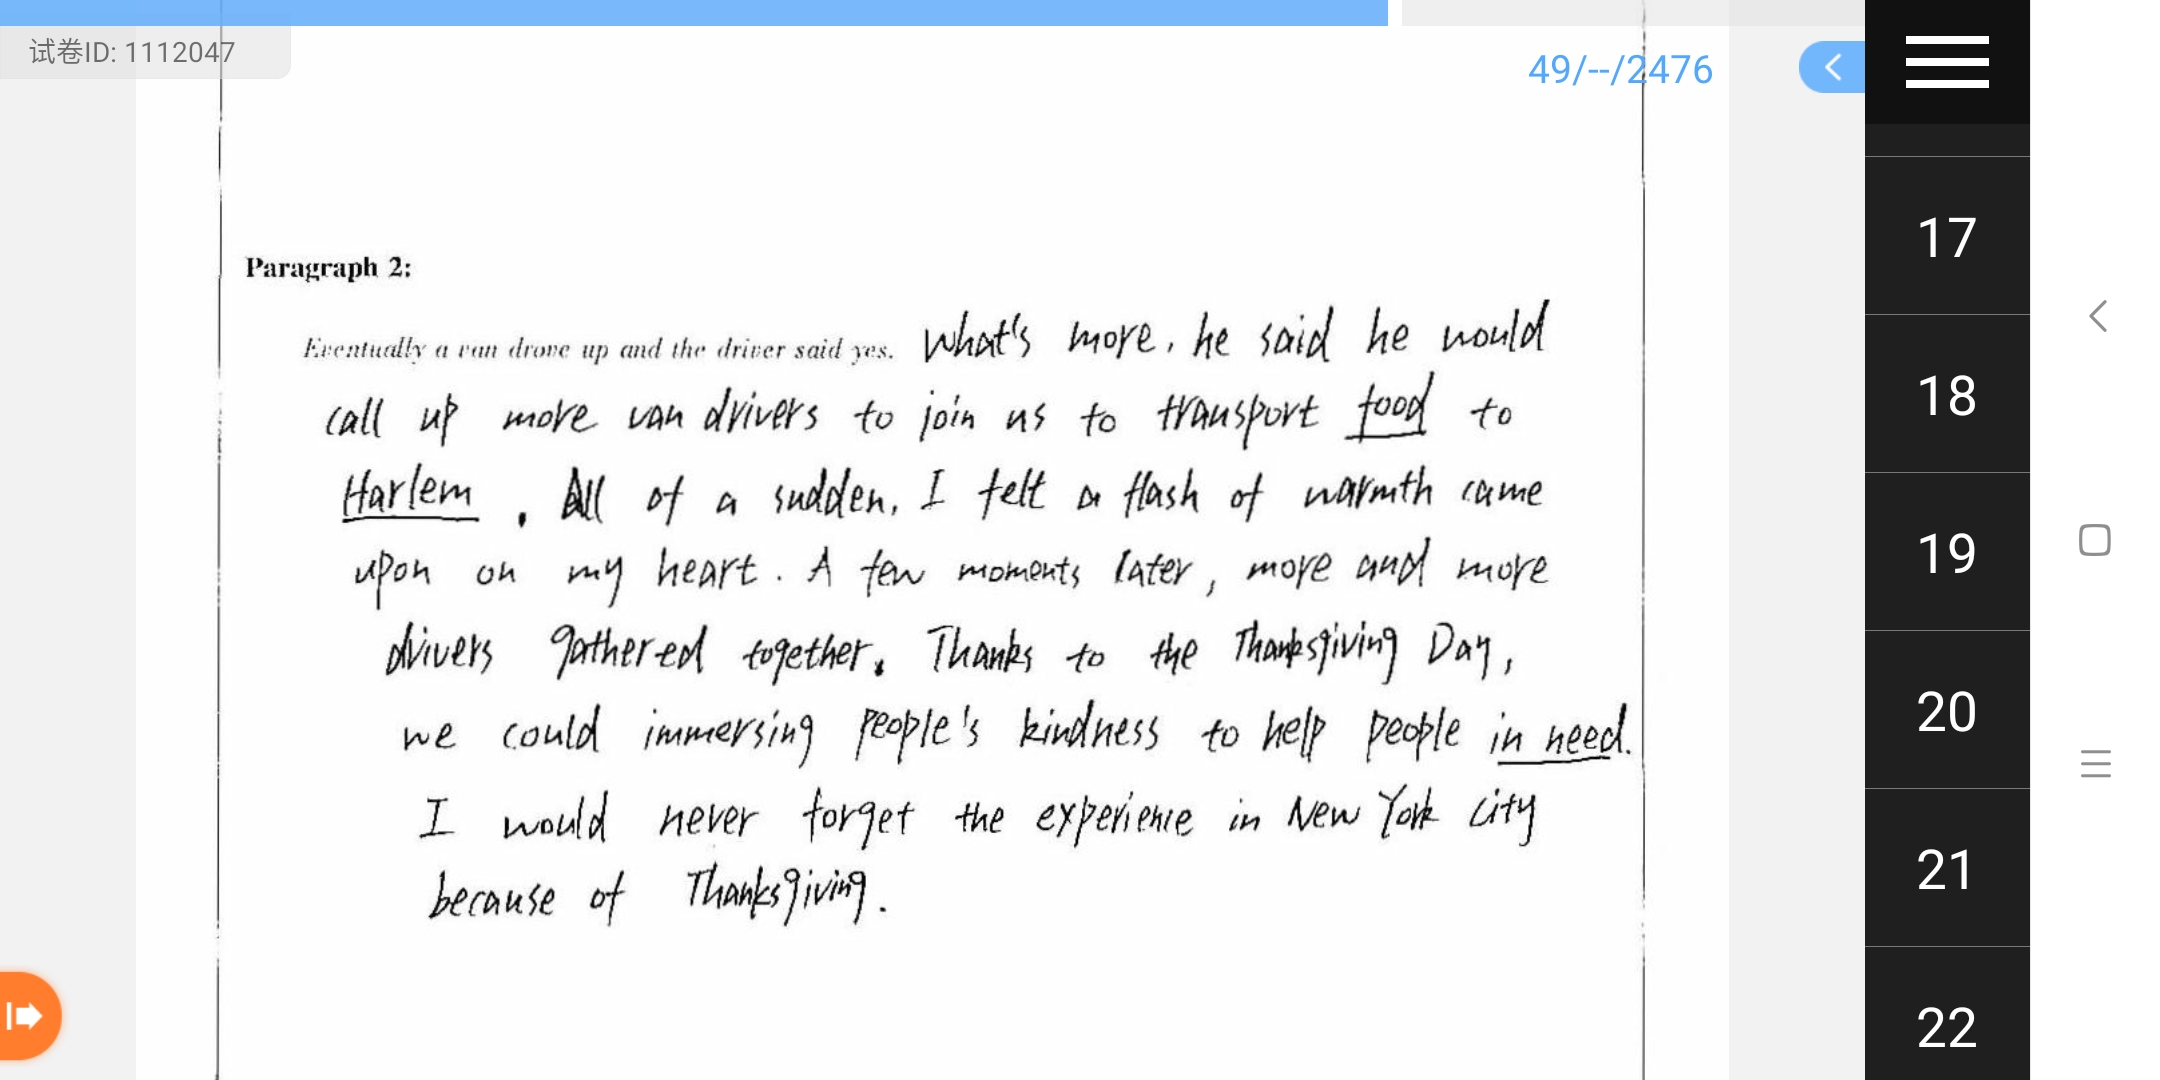 试卷ID: 1112047
49/--/2476
Paragraph 2:
Eventually a van drove up and the driver said yes. What's more, he said he would
call up more van drivers to join us to transport food to
Harlem. All of a sudden, I felt a flash of warmth came
upon on my heart. A few moments later, more and more
drivers gathered together. Thanks to the Thanksgiving Day,
we could immersing people's kindness to help people in need.
I would never forget the experience in New York City
because of Thanksgiving.
17
18
19
20
21
22